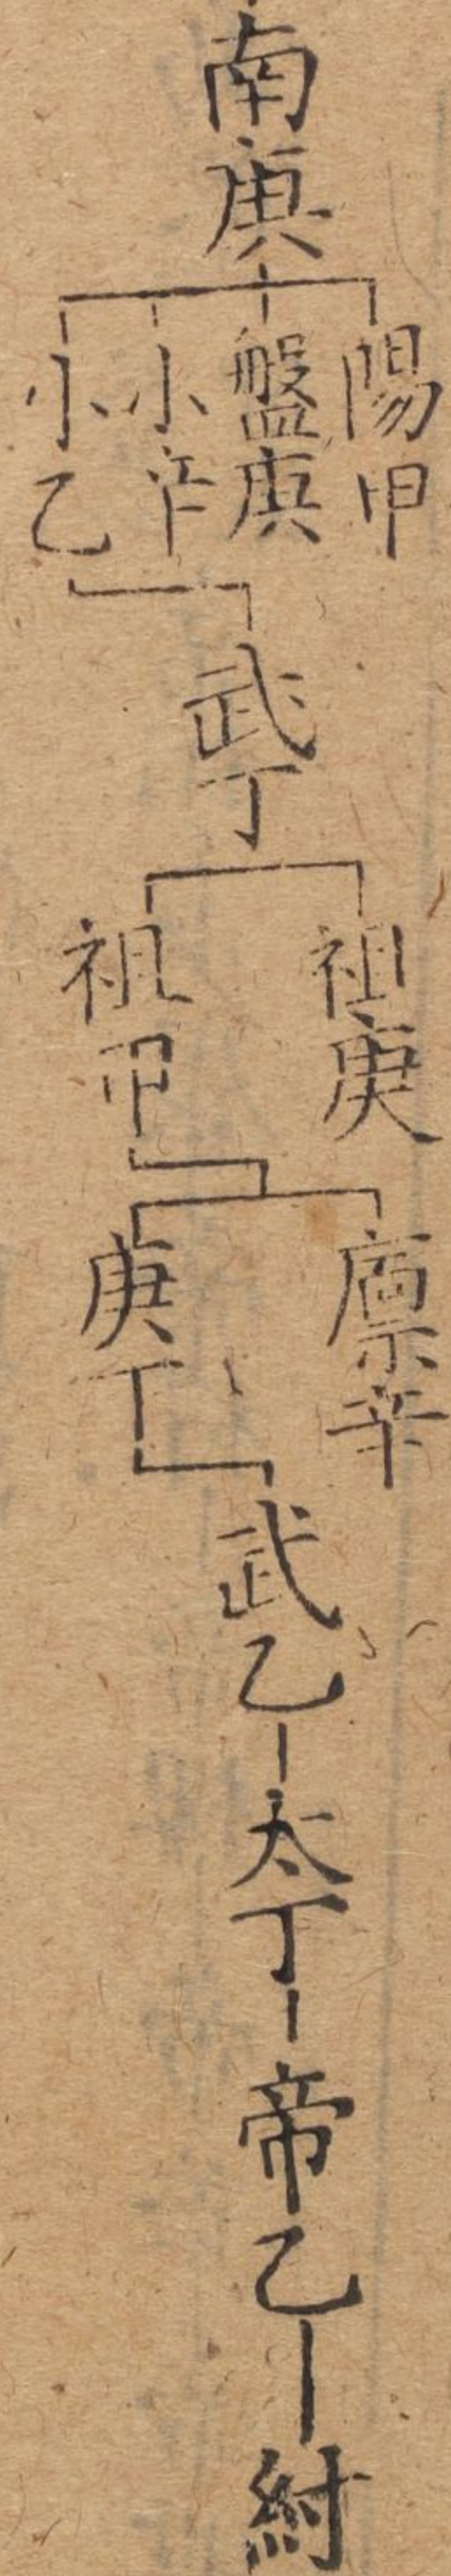 南庚
陽甲
盤庚
小辛
小乙
武丁
祖庚
祖甲
廩辛
庚丁
武乙
太丁
帝乙
紂